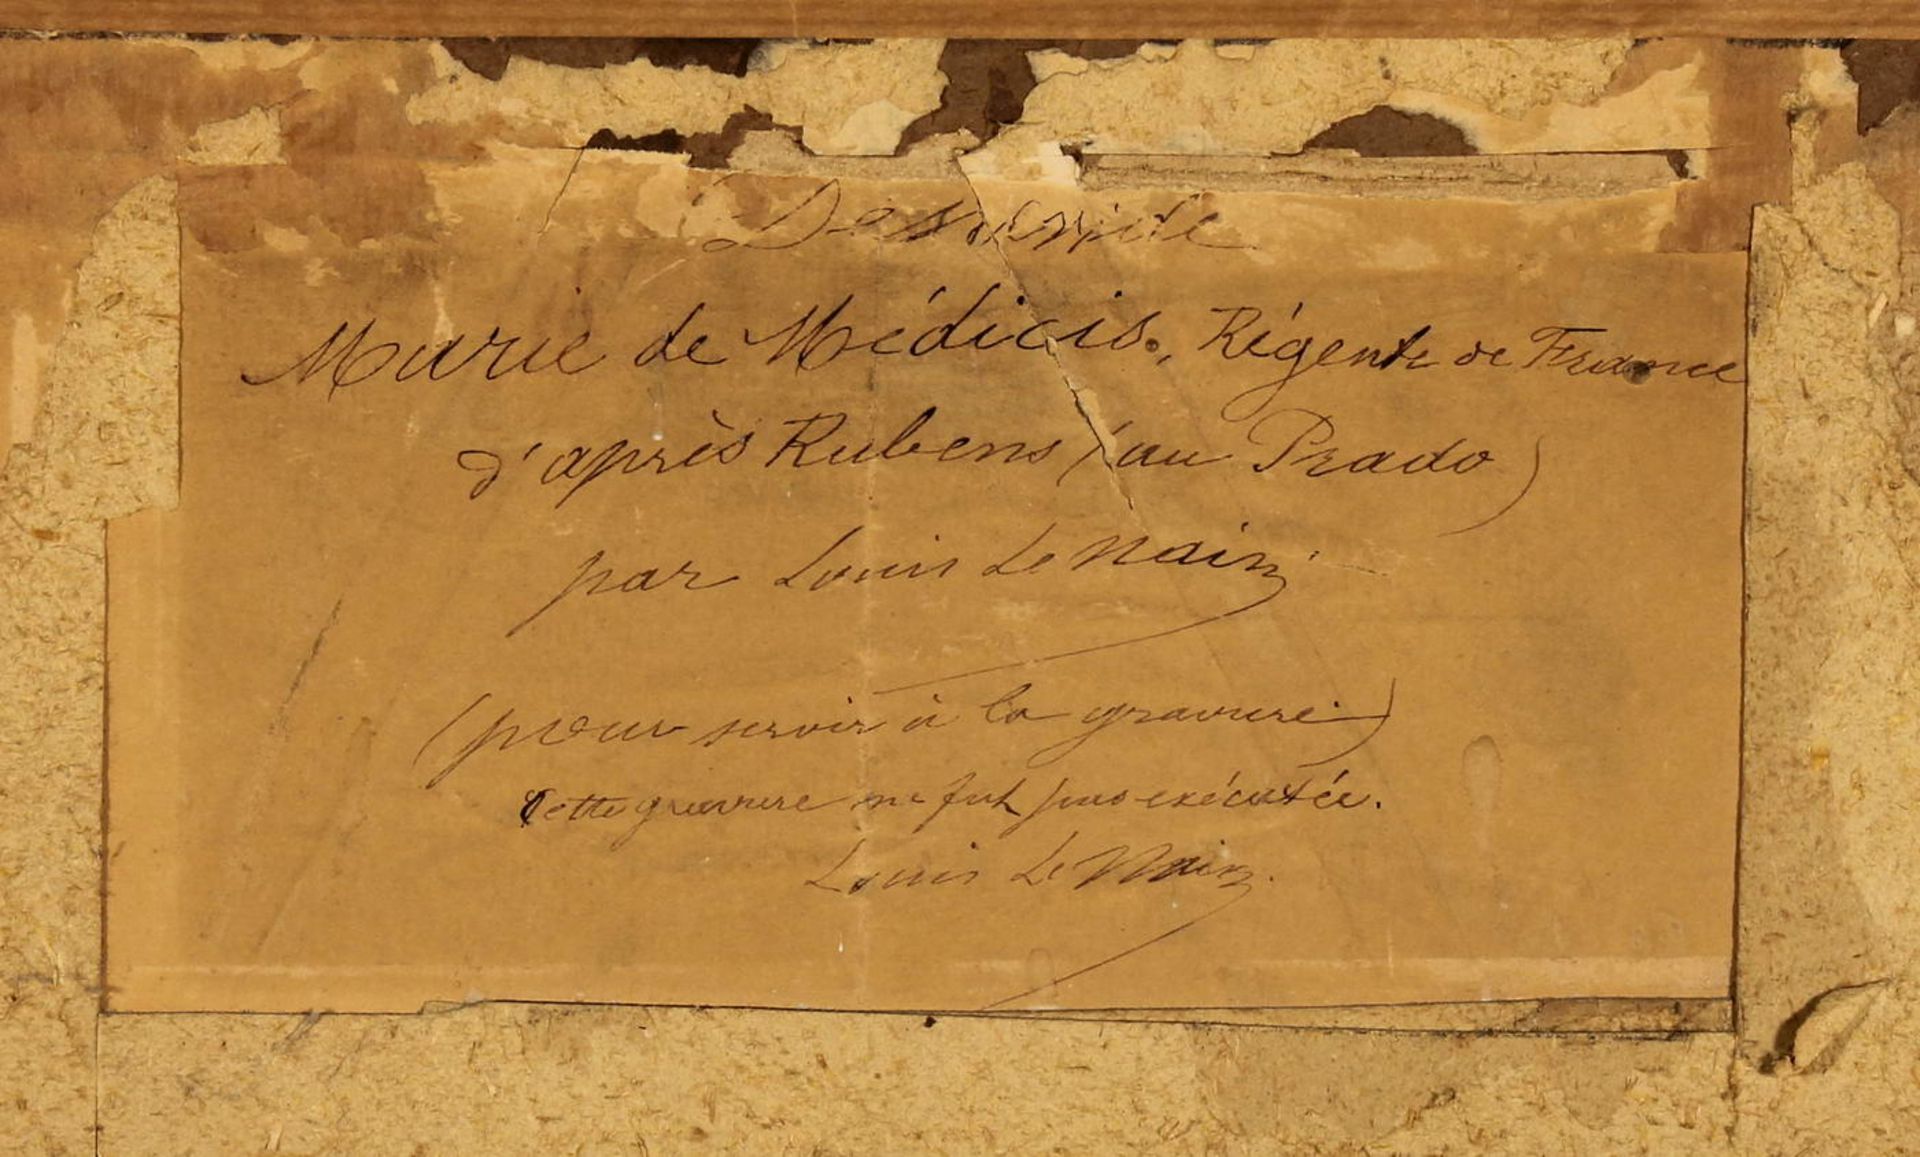 Marie de Médicis, Régente de France
d'après Rubens (au Prado)
par Louis Le Nain
(pour servir à la gravure)
Cette gravure ne fut pas exécutée.
Louis Le Nain.